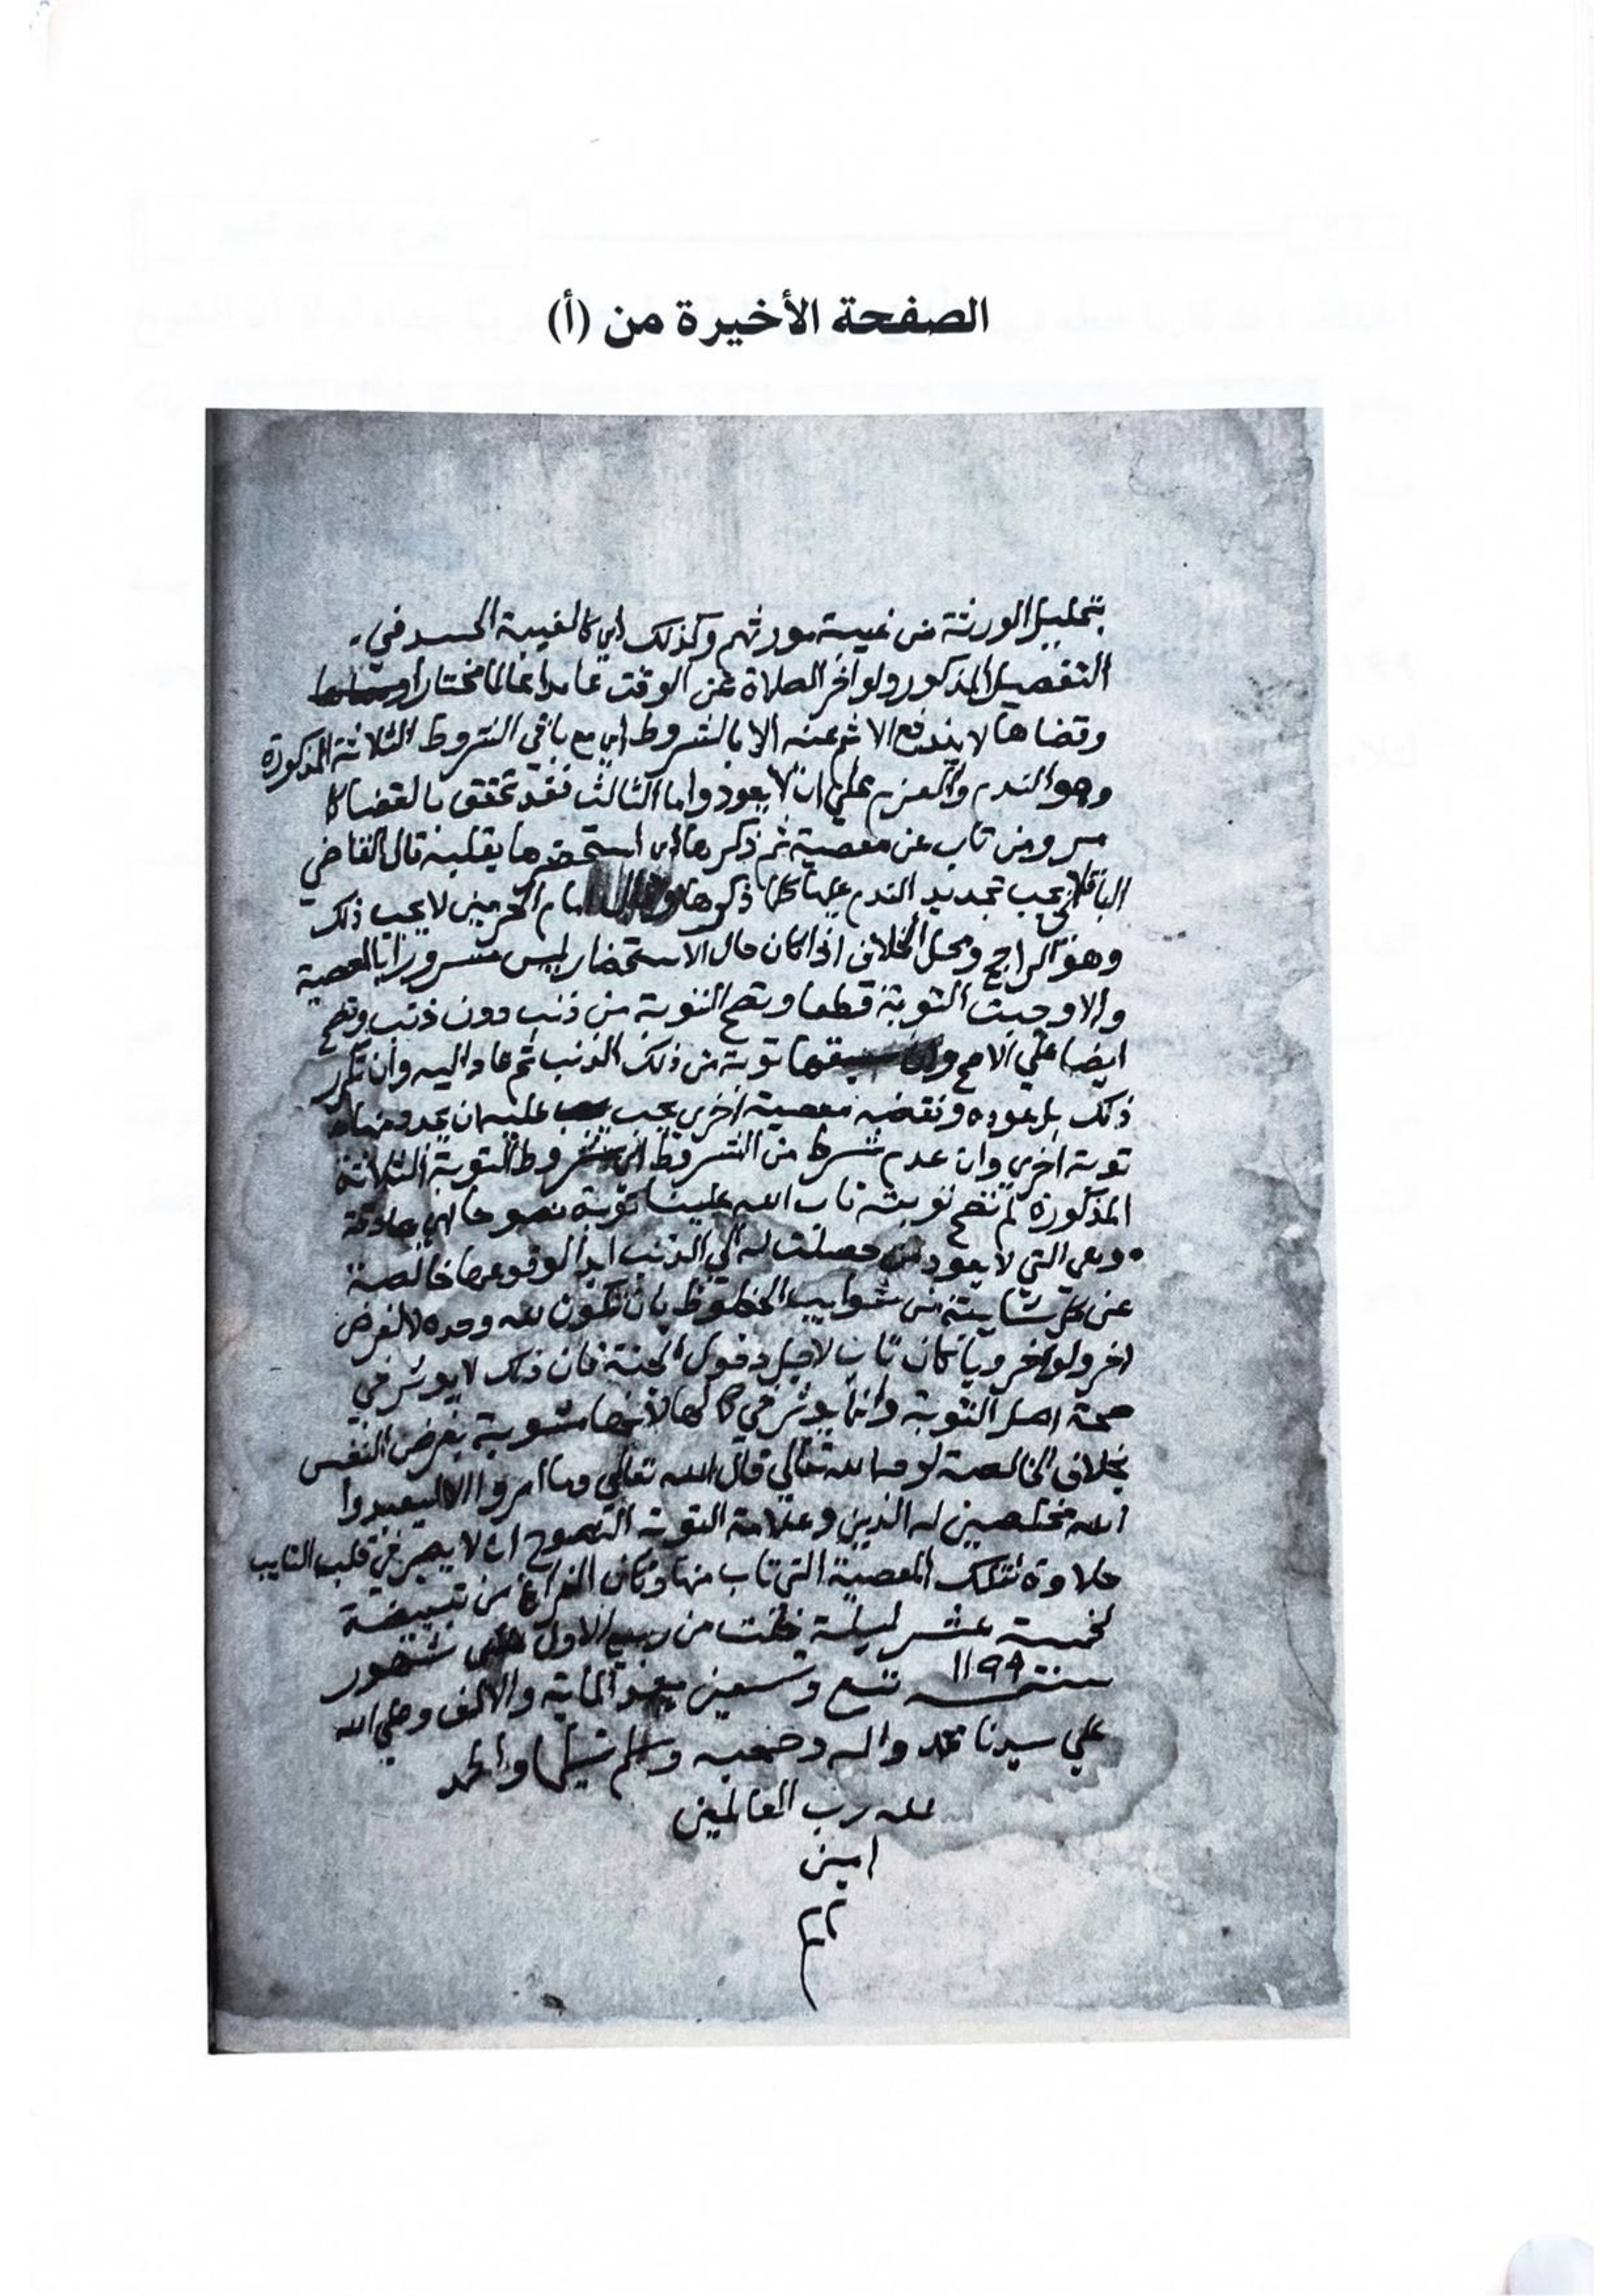 الصفحة الأخيرة من (أ)
بتحليل الورثة من غيبة مورثهم وكذلك اي كالغيبة الحسد في
التفصيل المذكور ولو اخر الصلاة عن الوقت عامدا عالما مختارا
وقضاها لا يندفع الاثم عنه الا بالشروط اي مع باقي الشروط الثلاثة المذكورة
وهو الندم والعزم علي ان لا يعود واما الثالث فقد تحقق بالقضا كا
مر ومن تاب عن معصية ثم ذكرها اي استحضرها بقلبه قال القاضي
الباقلاني يجب تجديد الندم عليها كلما ذكرها وقال امام الحرمين لا يجب ذلك
وهو الراجح ومحل الخلاف اذا كان حال الاستحضار ليس مسرورا بالمعصية
والا وجبت التوبة قطعا وتصح التوبة من ذنب دون ذنب وتصح
ايضا علي الاصح وان سبقها توبة من ذلك الذنب ثم عاد اليه وان تكرر
ذلك بل عوده ونقضه معصية اخري يجب عليه ان يجدد منها
توبة اخري وان عدم شرط من الشروط اي شروط التوبة الثلاثة
المذكورة لم تصح توبته تاب الله علينا توبة نصوحا اي صادقة
وهي التي لا يعود من حصلت له الي الذنب ابدا لوقوعها خالصة
عن كل شايبة من شوايب الحظوظ بان تكون لله وحده لا لغرض
اخر ولو اخرويا كان تاب لاجل دخول الجنة فان ذلك لا يوثر في
صحة اصل التوبة وانما يوثر في كمالها لانها مشوبة بغرض النفس
بخلاف الخالصة لوجه الله تعالي قال الله تعالي وما امروا الا ليعبدوا
الله مخلصين له الدين وعلامة التوبة النصوح ان لا يصير في قلب التايب
حلاوة لتلك المعصية التي تاب منها وكان الفراغ من تبييضه
لخمسة عشر ليلة خلت من ربيع الاول من شهور
سنة ١١٩٩ تسع وتسعين بعد الماية والالف وصلي الله
علي سيدنا محمد واله وصحبه وسلم تسليما والحمد
لله رب العالمين
امين